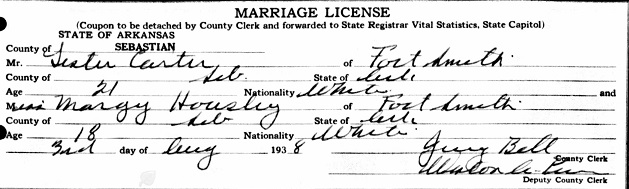 MARRIAGE LICENSE
(Coupon to be detached by County Clerk and forwarded to State Registrar Vital Statistics, State Capitol)
STATE OF ARKANSAS
County of SEBASTIAN
Mr. Lester Carter of Fort Smith
County of Seb. State of Ark.
Age 21 Nationality White and
Miss Margy Housley of Fort Smith
County of Seb State of Ark.
Age 18 Nationality White
3rd day of Aug 1938 Bell
County Clerk
Deputy County Clerk